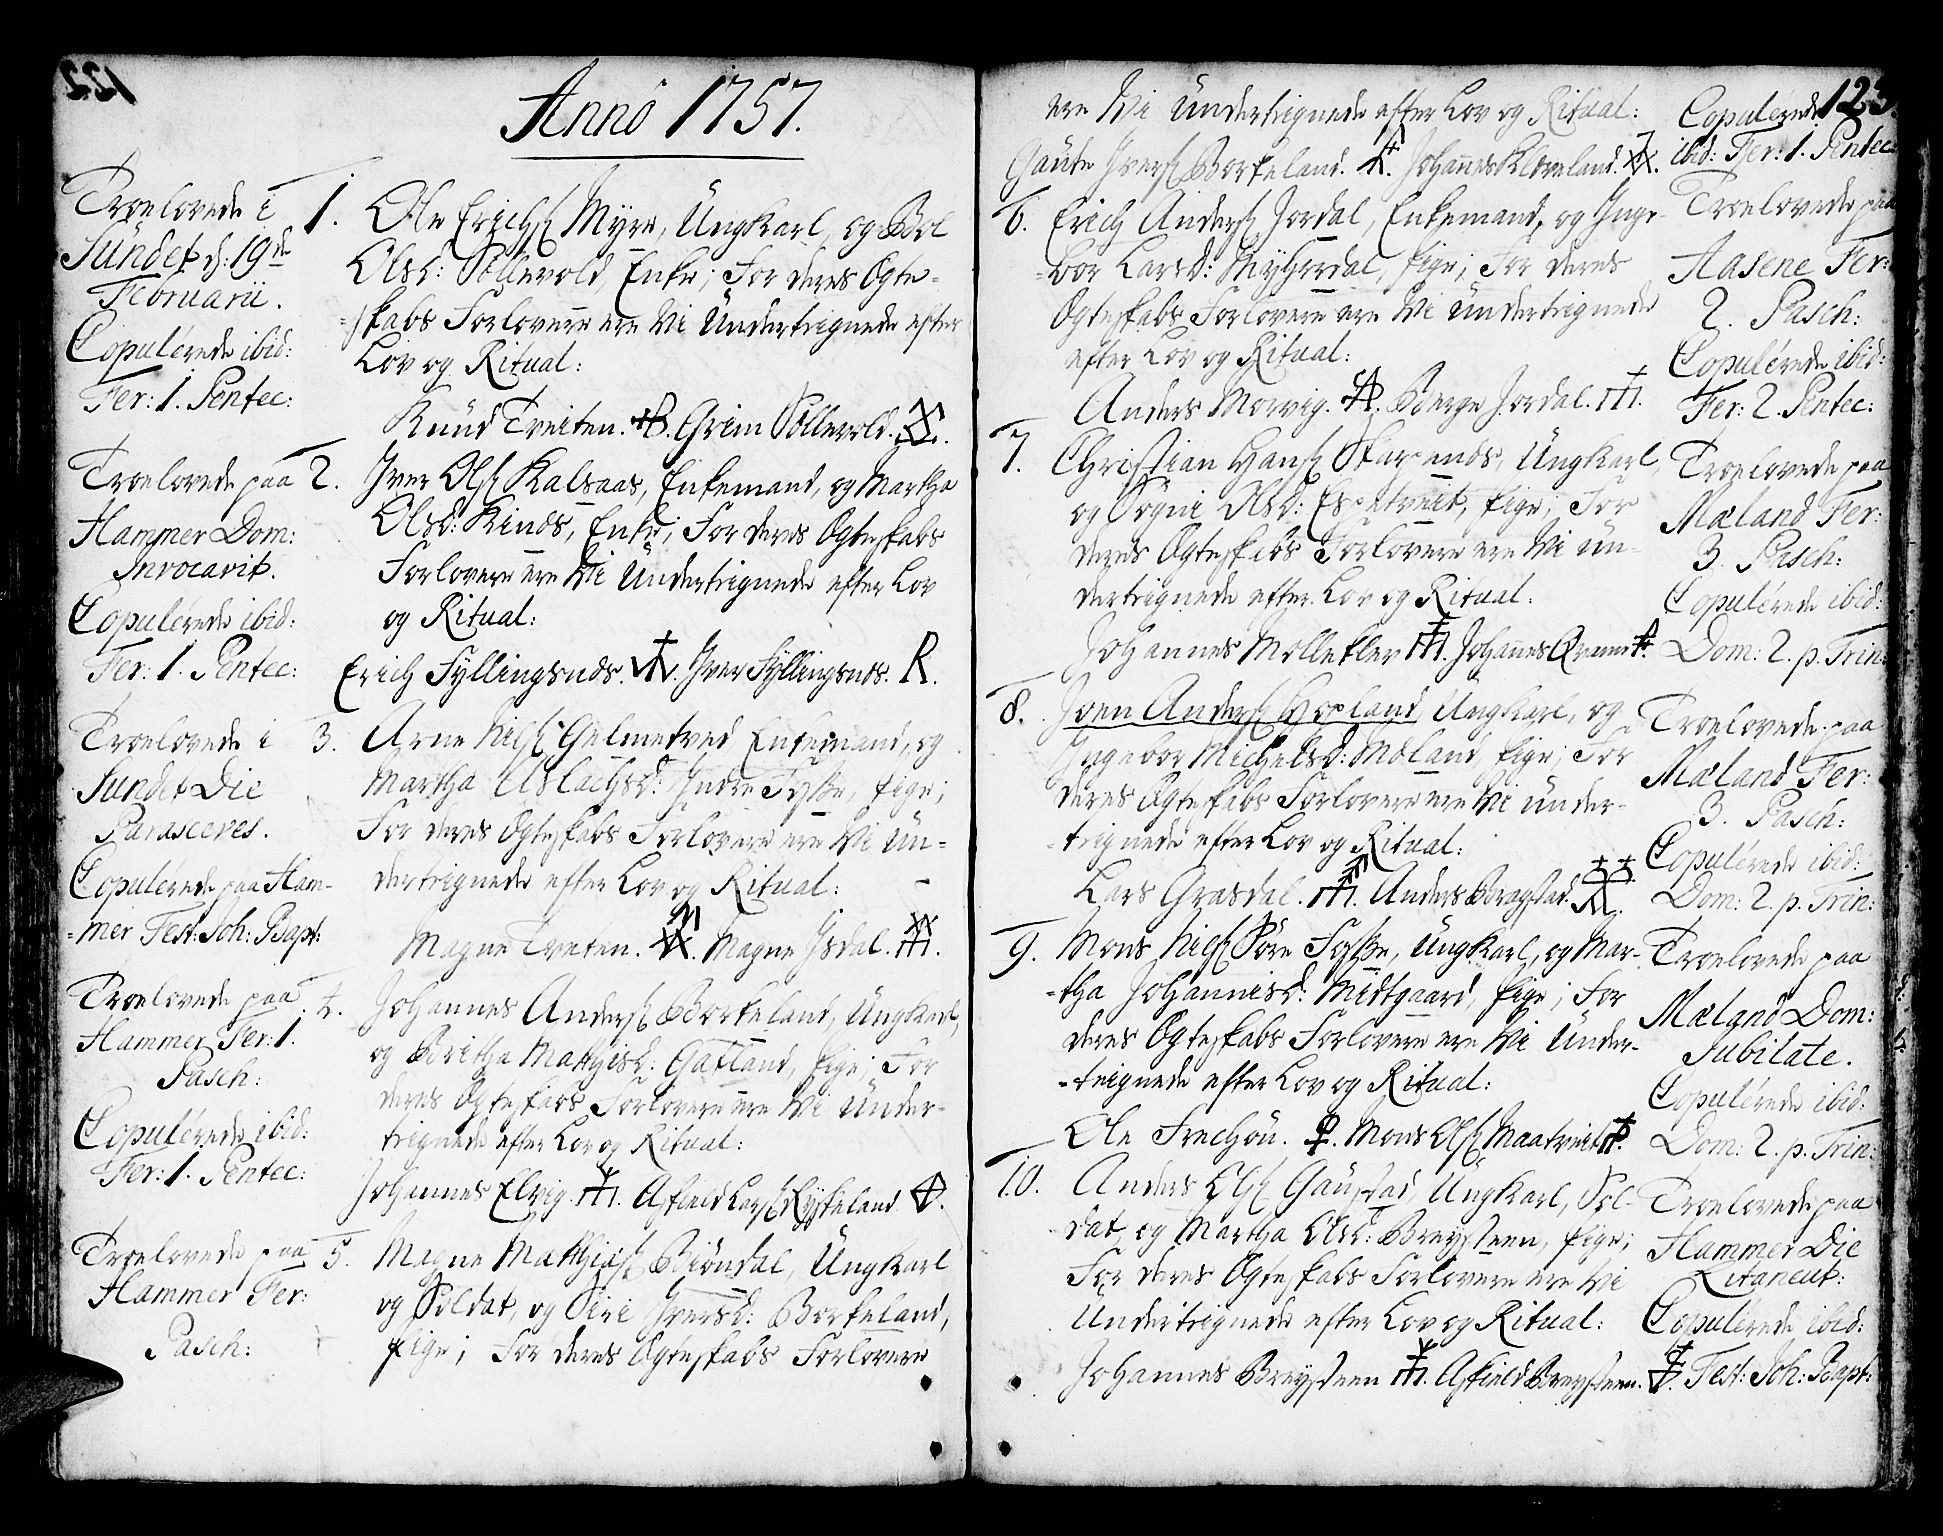 122
Annô 1757.
Troelovede i
Sundet d: 19de
Februarii.
Copulérede ibid:
Fer: 1. Pentec:
1. Ole Erichs: Myre, Ungkarl, og Boel
Olsd: Sollevold, Enke; For deres Ægte-
-skabs Forlovere ere Vi Undertegnede efter
Lov og Ritual:
Knud Tveiten. Grim Sollevold.
Troelovede paa
Hammer Dom:
Invocavit.
Copulérede ibid:
Fer: 1. Pentec:
2. Iver Ols: Kalsaas, Enkemand, og Martha
Olsd: Kinds, Enke; For deres Ægteskabs
Forlovere ere Vi Undertegnede efter Lov
og Ritual:
Erich Fyllingsnæs. Iver Fyllingsnæs. R.
Troelovede i
Sundet Die
Parasceves.
Copulerede paa Ham-
-mer Fest: Joh: Bapt:
3. Arne Nils: Gelmetved Enkemand, og
Martha Aslachsd: Indre Fysse, Pige;
For deres Ægteskabs Forlovere ere Vi Un-
dertegnede efter Lov og Ritual:
Magne Tveten. Magne Isdal.
Troelovede paa
Hammer Fer: 1.
Pasch:
Copulérede ibid:
Fer: 1. Pentec:
4. Johannes Anders: Borkeland, Ungkarl,
og Britha Mathisd: Gatland, Pige; For
deres Ægteskabs Forlovere ere Vi Under-
tegnede efter Lov og Ritual:
Johannes Elvig. Askield Lars: Ryskeland
Troelovede paa
Hammer Fer:
Pasch:
5. Magne Mathias: Biöndal, Ungkarl
og Soldat, og Siri Iversd: Borkeland,
Pige; For deres Ægteskabs Forlovere
123.
ere Vi Undertegnede efter Lov og Ritual:
Gaute Ivers: Borkeland. Johannes Kleveland.
Copulérede
ibid: Fer: 1. Pentec:
6. Erich Anders: Jordal, Enkemand, og Inge-
-bor Larsd: Myhrdal, Pige; For deres
Ægteskabs Forlovere ere Vi Undertegnede
efter Lov og Ritual:
Anders Morvig. Børge Jordal.
Troelovede paa
Aasene Fer:
2. Pasch:
Copulérede ibid:
Fer: 2. Pentec:
7. Christian Hans: Skarpenæs, Ungkarl,
og Sögni Olsd: Espetveit, Pige; For
deres Ægteskabs Forlovere ere Vi Un-
dertegnede efter Lov og Ritual:
Johannes Mollekler Johannes Qvamme
Troelovede paa
Mæland Fer:
3. Pasch:
Copulérede ibid:
Dom: 2. p. Trin:
8. Joen Anders: Hopland Ungkarl, og
Ingebor Michelsd: Mæland, Pige; For
deres Ægteskabs Forlovere ere Vi Under-
-tegnede efter Lov og Ritual:
Lars Grasdal. Anders Bragstad.
Troelovede paa
Mæland Fer:
3. Pasch:
Copulérede ibid:
Dom: 2. p. Trin:
9. Mons Nils: Søre Fosse, Ungkarl, og Mar-
-tha Johannisd: Midtgaard, Pige; For
deres Ægteskabs Forlovere ere Vi Under-
-tegnede efter Lov og Ritual:
Ole Frechöu. Mons Ols: Maatveit
Troelovede paa
Mæland Dom:
Jubilate.
Copulérede ibid:
Dom: 2. p. Trin:
10. Anders Ols: Gaustad, Ungkarl, Sol-
dat, og Martha Olsd: Breysteen, Pige;
For deres Ægteskabs Forlovere ere Vi
Undertegnede efter Lov og Ritual:
Johannes Breysteen Askield Breysteen.
Troelovede paa
Hammer Die
Litaneut:
Copulérede ibid:
Fest: Joh: Bapt: